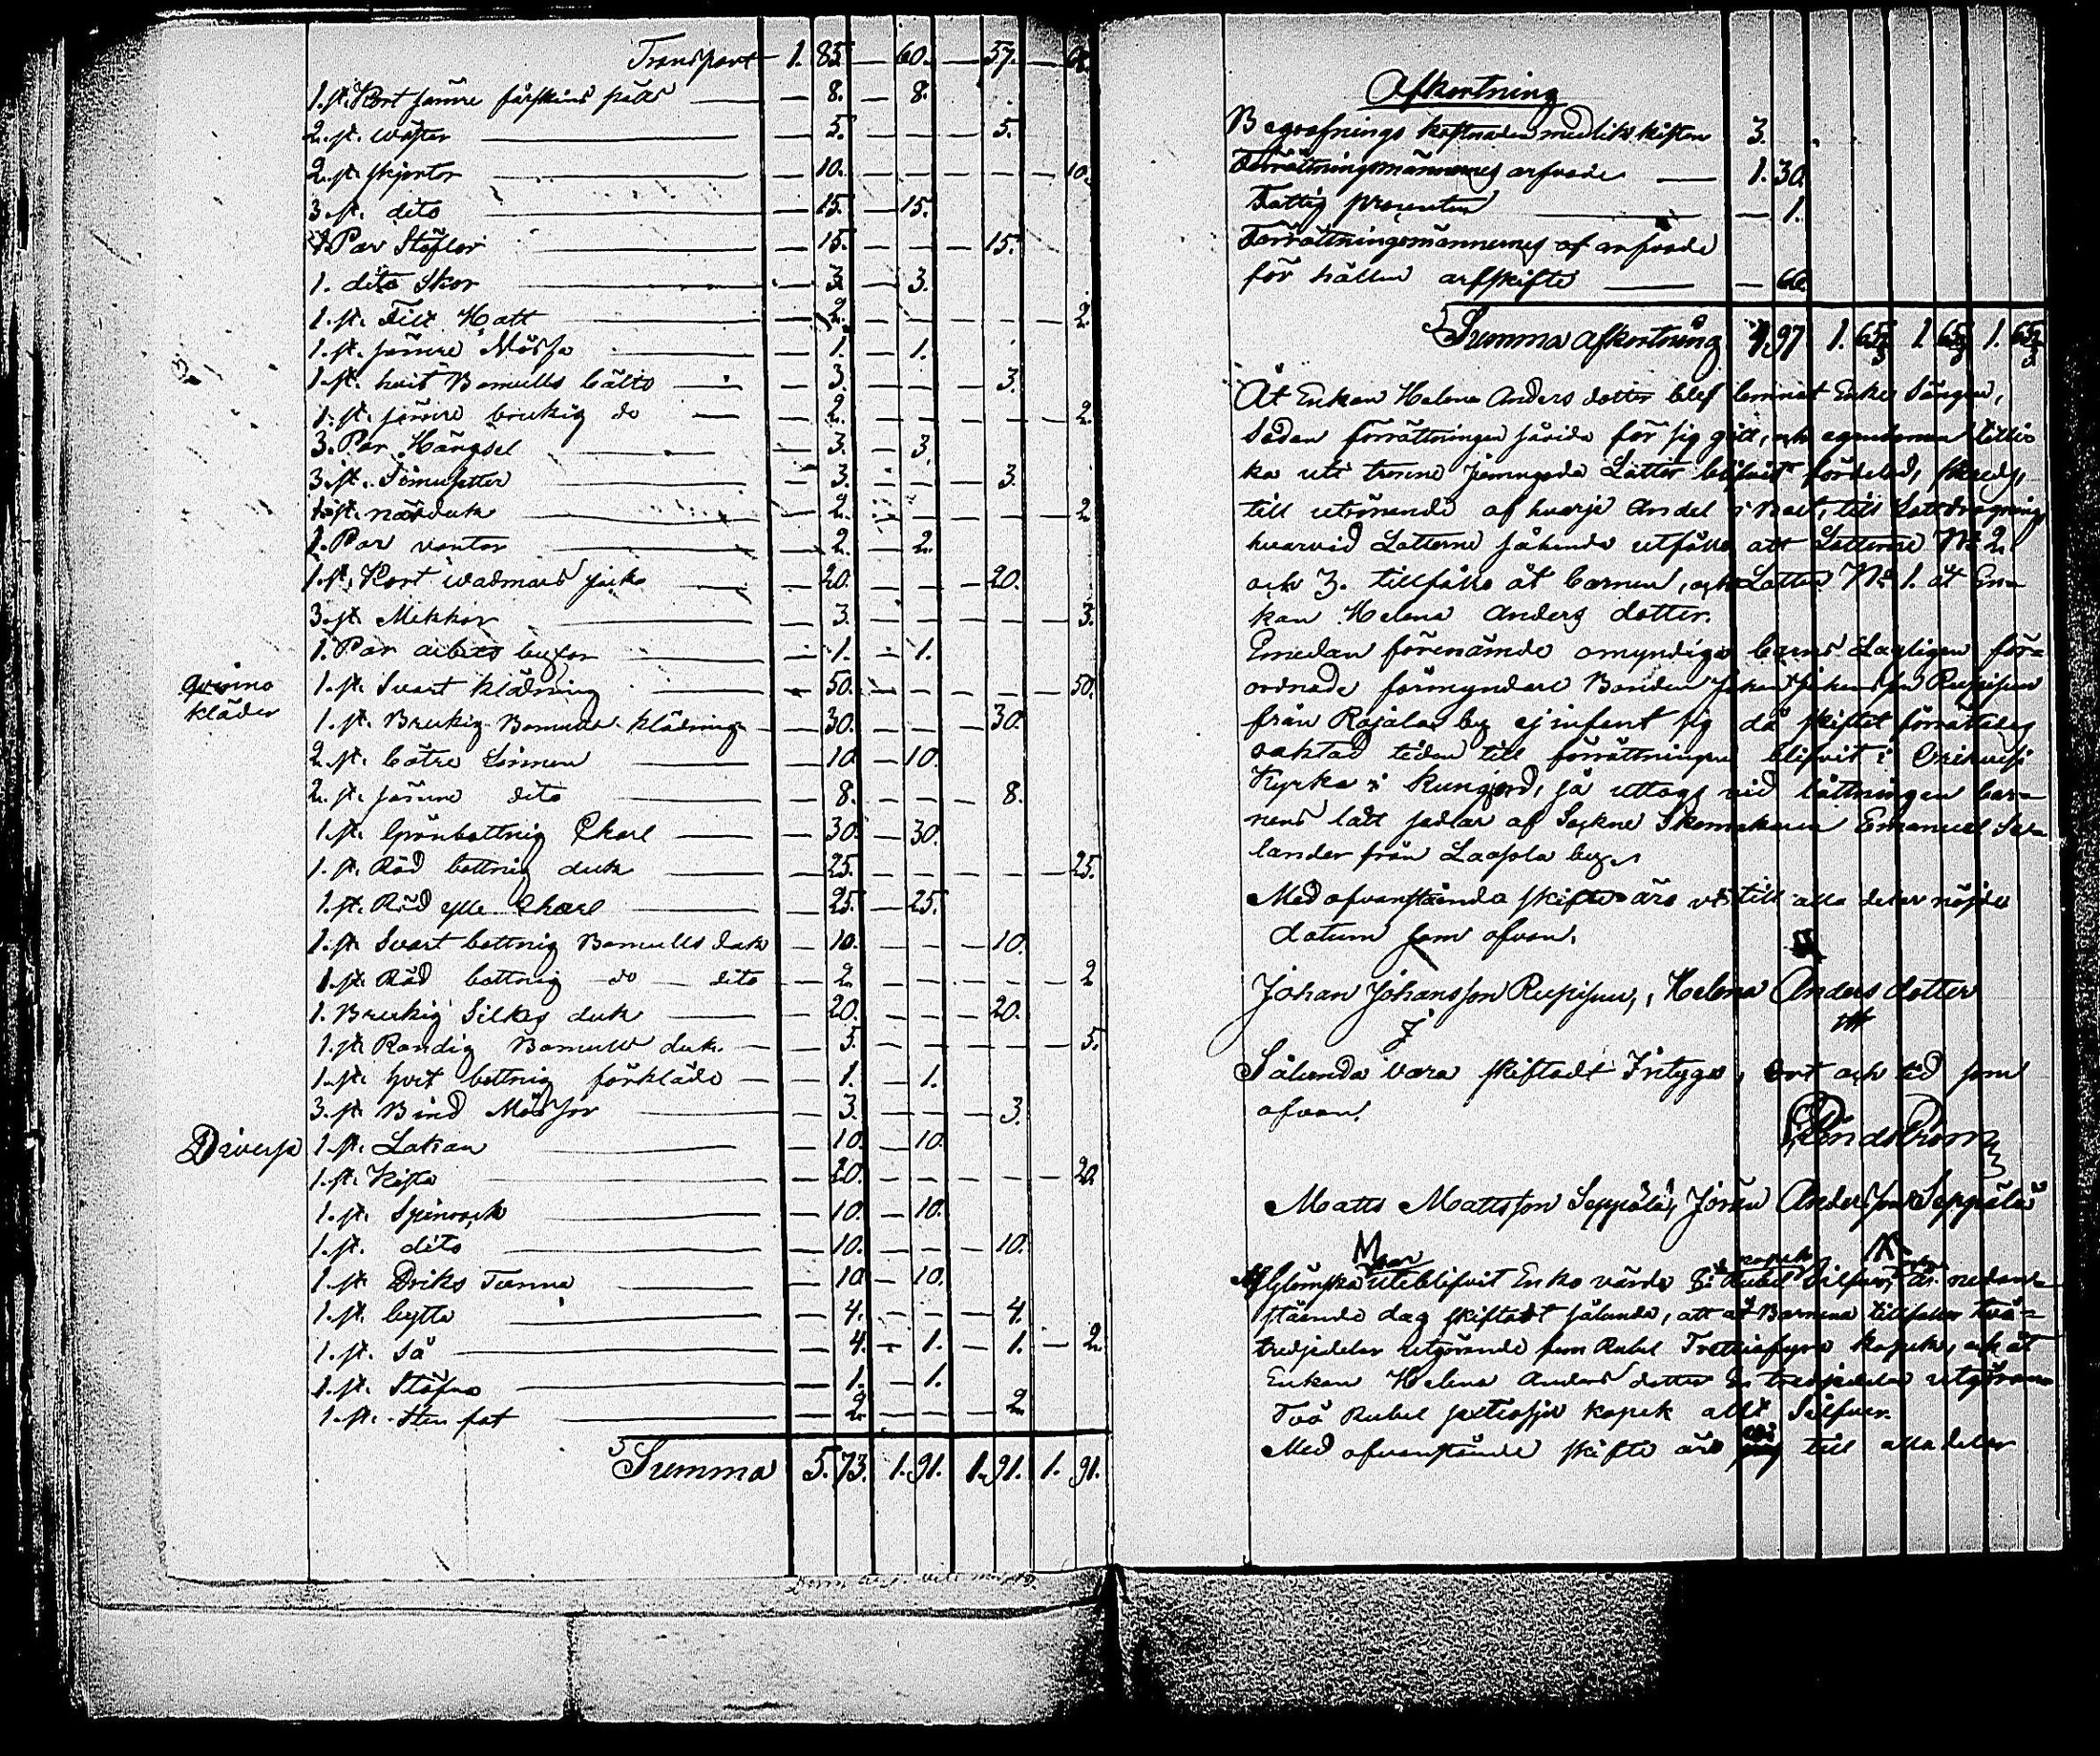 Transport 1. 83. — 60. — 57. —
1. st. Kort sämre fårskins päls — 8. — 8.
2. st. wäster — 5. — — — 5.
2. st. skjortor — 10. — — — — — 10.
3. st. dito — 15. — 15.
Par Stöflor — 15. — — — 15.
1. dito Skor — 3. — 3.
1. st. Filt Hatt — 2. — — — — — 2.
1. st. sämre Mössa — 1. — 1.
1. st. hvit Bomulls bälte — 3. — — — 3.
1. st. sämre brukig do — 2. — — — — — 2.
3. Par Hängsel — 3. — 3.
3. st. — 3. — — — 3.
1. st. näsduk — 2. — — — — — 2.
1. Par vantar — 2. — 2.
1. st. Kort wadmals — 20. — — — 20.
3. st. — 3. — — — — — 3.
1. Par arbets byxor — 1. — 1.
Qvinno
kläder
1. st. Svart klädning — 50. — — — — — 50.
1. st. Brukig Bomulls klädning — 30. — — — 30.
2. st. bätre Linnen — 10. — 10.
2. st. sämre dito — 8. — — — 8.
1. st. Grönbottnig Charl — 30. — 30.
1. st. Röd bottnig duk — 25. — — — — — 25.
1. st. Röd ylle Charl — 25. — 25.
1. st. Svart bottnig Bomulls duk — 10. — — — 10.
1. st. Röd bottnig do dito — 2. — — — — — 2
1. Brukig Silkes duk — 20. — — — 20.
1. st. Randig Bomulls duk — 5. — — — — — 5.
1. st. hvit bottnig förkläde — 1. — 1.
3. st. Bind Mössor — 3. — — — 3.
Diverse 1. st. Lakan — 10. — 10.
1. st. Kista — 20. — — — — — 20.
1. st. Spinrock — 10. — 10.
1. st. dito — 10. — — — 10.
1. st. Driks Tunna — 10. — 10.
1. st. bytta — 4. — — — 4.
1. st. Så — 4. — 1. — 1. — 2.
1. st. Stäfva — 1. — 1.
1. st. Sten fat — 2. — — — 2.
Summa 5. 73. 1. 91. 1. 91. 1. 91.
Afkortning
Begrafnings kostnaden med likkistan 3.
Förrättningsmännernes arfvode — 1. 30.
Fattig procenten — 1.
Förrättningsmännernes af arfvode
för hållen arfskifte — 66.
Summa afkortning 4. 97 1. 65⅔ 1. 65⅔ 1. 65⅔
Åt Enkan Helena Anders dotter blef lemnat Enke Sängen,
Sedan förrättningen såvida för sig gått, och egendomen
uti trenne Lotter blifvit fördelad, skreds,
till utrönande af hvarje Andel till Lottdragning
hvarvid Lotterne sålunda utföllo att Lotterne No 2
och 3. tillföllo åt barnen, och Lotten No 1. åt En-
kan Helena Anders dotter.
Emedan förenämde omyndiga barns Lagligen för-
ordnade förmyndare Bonden Johan Johansson
från Rajala by ej infunt sig då skiftet förrättades
oaktad tiden till förrättningen blifvit i Orihvesi
Kyrka kungjord, så uttogs vid lottningen bar-
nens lått sedlar af Sockne Skomakaren Emanuel
lander från by.
Med ofvanstående skifte äro vi till alla delar nöjde
datum som ofvan.
Johan Johansson Helena Anders dotter
Sålunda vara skiftadt Intygas, ort och tid som
ofvan.
Matts Mattsson Seppälä, Jöran Andersson Seppälä
uteblifvit Enko värde Rubel Silfver, är nedan-
stående dag skiftadt sålunda, att åt Barnena tillfaller två-
tredjedelar utgörande fem Rubel Trettiofyra kopek, och åt
Enkan Helena Anders dotter En tredjedel utgörande
Två Rubel sextiosju kopek allt Silfver.
Med ofvanstående skifte äro vi till alla delar